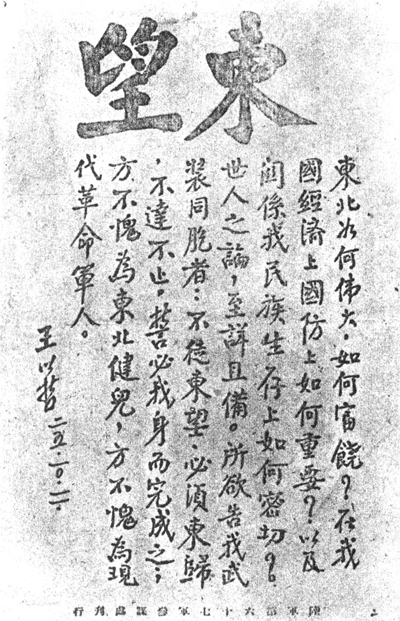 東望
東北如何偉大,如何富饒?在我
國經濟上國防上如何重要?以及
關係我民族生存上如何密切?。
世人之論,至詳且備。所欲告我武
裝同胞者:不徒東望,必須東歸
,不達不止。誓必我身而完成之;
方不愧為東北健兒,方不愧為現
代革命軍人。
王以哲 二五.一〇.二一.
陸軍第六十七軍參謀處刊行